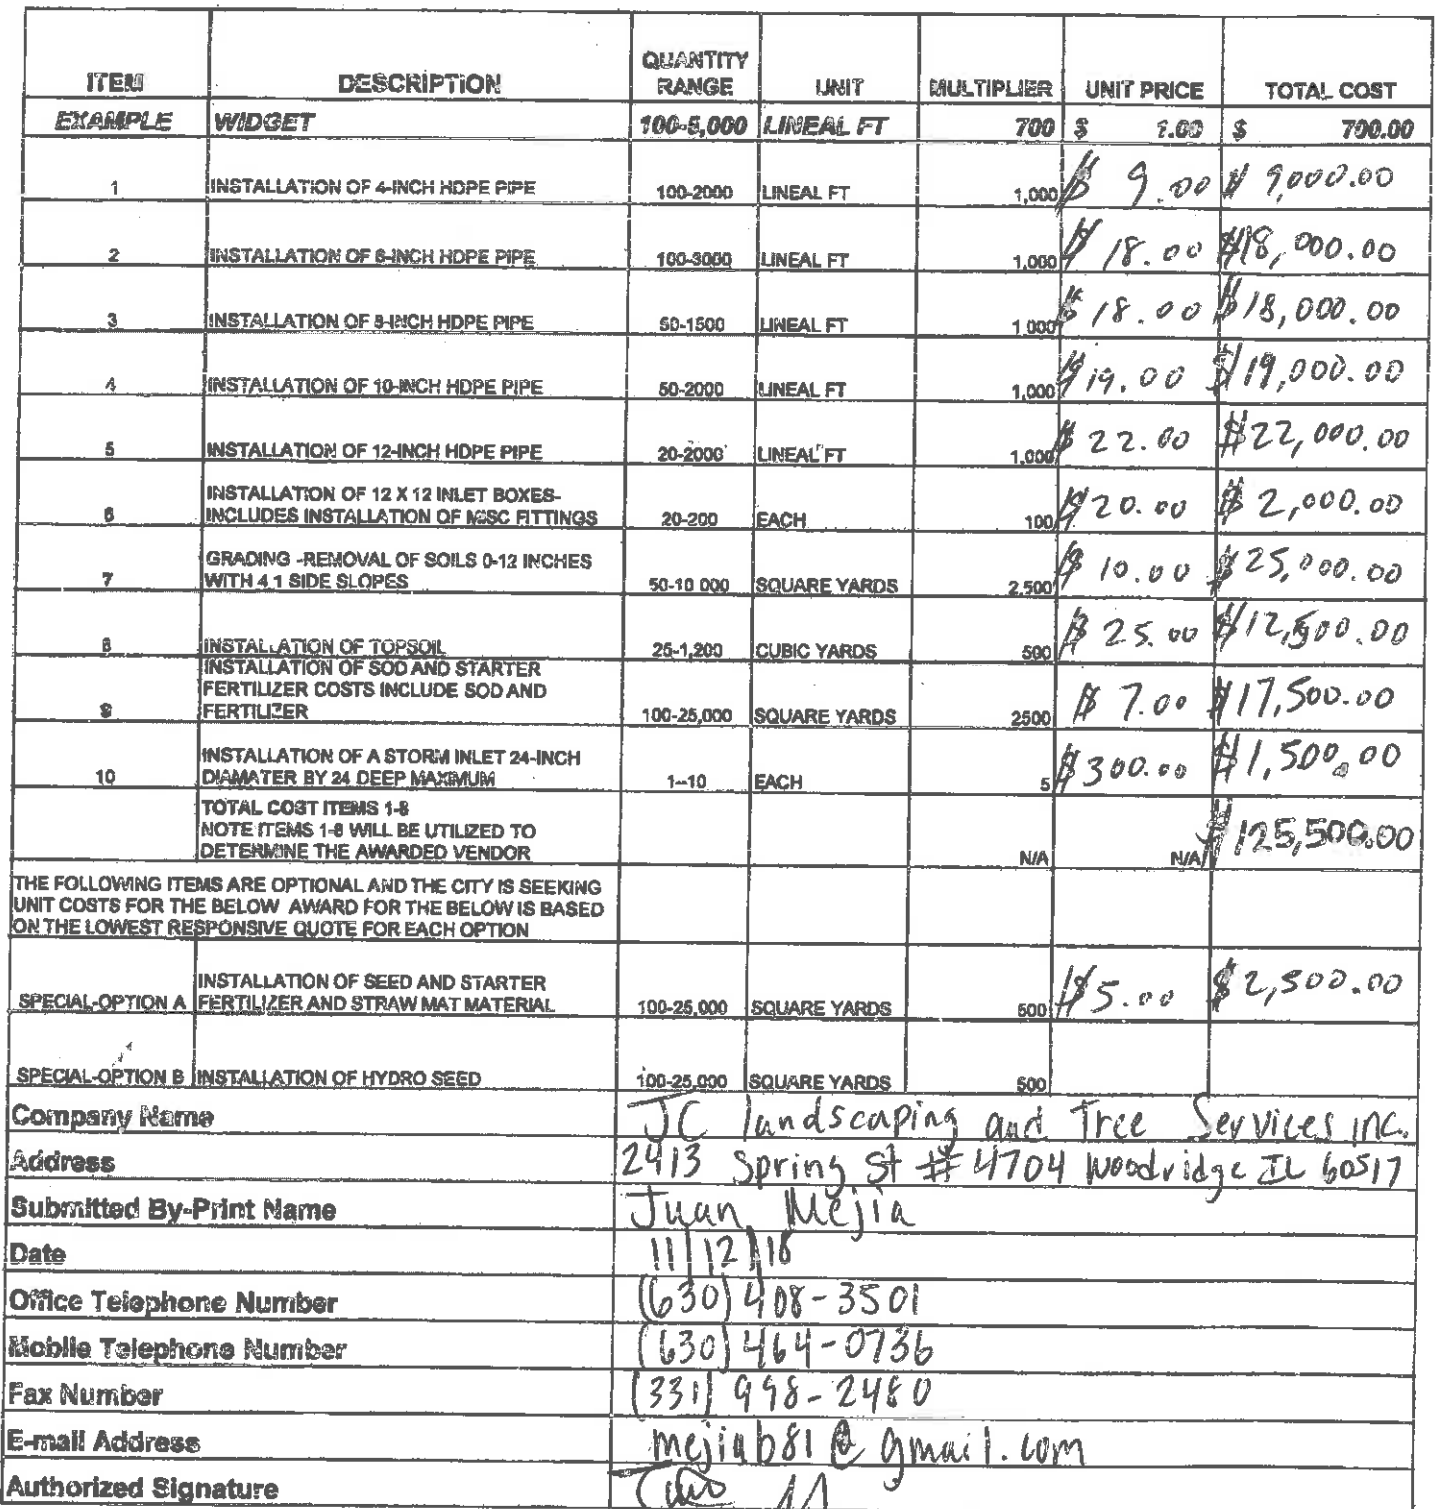 ITEM DESCRIPTION QUANTITY RANGE UNIT MULTIPLIER UNIT PRICE TOTAL COST
EXAMPLE WIDGET 100-5,000 LINEAL FT 700 $ 1.00 $ 700.00
1 INSTALLATION OF 4-INCH HDPE PIPE 100-2000 LINEAL FT 1,000 $ 9.00 $ 9,000.00
2 INSTALLATION OF 6-INCH HDPE PIPE 100-3000 LINEAL FT 1,000 $ 18.00 $18,000.00
3 INSTALLATION OF 8-INCH HDPE PIPE 50-1500 LINEAL FT 1 000 $ 18.00 $18,000.00
4 INSTALLATION OF 10-INCH HDPE PIPE 50-2000 LINEAL FT 1,000 $19.00 $19,000.00
5 INSTALLATION OF 12-INCH HDPE PIPE 20-2000 LINEAL FT 1,000 $ 22.00 $22,000.00
INSTALLATION OF 12 X 12 INLET BOXES-
6 INCLUDES INSTALLATION OF MISC FITTINGS 20-200 EACH 100 $20.00 $ 2,000.00
GRADING -REMOVAL OF SOILS 0-12 INCHES
7 WITH 4 1 SIDE SLOPES 50-10 000 SQUARE YARDS 2,500 $ 10.00 $ 25,000.00
8 INSTALLATION OF TOPSOIL 25-1,200 CUBIC YARDS 500 $ 25.00 $12,500.00
INSTALLATION OF SOD AND STARTER
FERTILIZER COSTS INCLUDE SOD AND
9 FERTILIZER 100-25,000 SQUARE YARDS 2500 $ 7.00 $17,500.00
INSTALLATION OF A STORM INLET 24-INCH
10 DIAMATER BY 24 DEEP MAXIMUM 1--10 EACH 5 $300.00 $1,500.00
TOTAL COST ITEMS 1-8
NOTE ITEMS 1-8 WILL BE UTILIZED TO
DETERMINE THE AWARDED VENDOR N/A N/A $125,500.00
THE FOLLOWING ITEMS ARE OPTIONAL AND THE CITY IS SEEKING
UNIT COSTS FOR THE BELOW AWARD FOR THE BELOW IS BASED
ON THE LOWEST RESPONSIVE QUOTE FOR EACH OPTION
INSTALLATION OF SEED AND STARTER
SPECIAL-OPTION A FERTILIZER AND STRAW MAT MATERIAL 100-25,000 SQUARE YARDS 500 $5.00 $ 2,500.00
SPECIAL-OPTION B INSTALLATION OF HYDRO SEED 100-25,000 SQUARE YARDS 500
Company Name JC landscaping and Tree Services inc.
Address 2413 Spring St # 4704 Woodridge IL 60517
Submitted By-Print Name Juan Mejia
Date 11/12/18
Office Telephone Number (630) 408-3501
Mobile Telephone Number (630) 464-0736
Fax Number (331) 998-2480
E-mail Address mejiab81@gmail.com
Authorized Signature